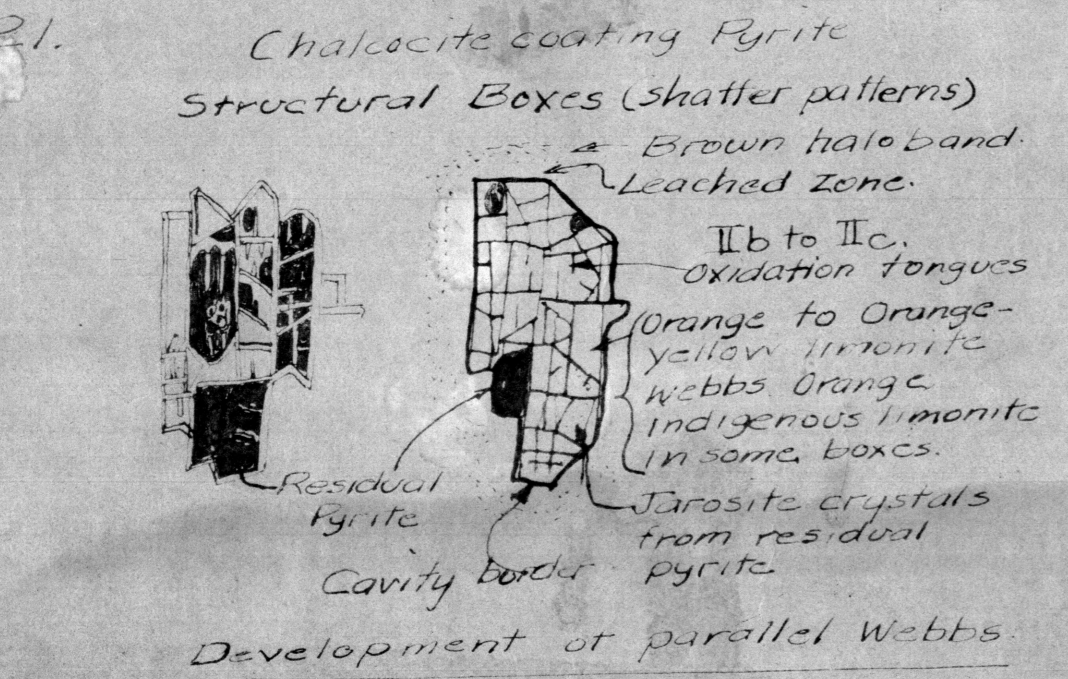 21.
Chalcocite coating Pyrite
Structural Boxes (shatter patterns)
Brown halo band.
Leached Zone.
IIb to IIc.
Oxidation tongues
Orange to Orange-
yellow limonite
webbs. Orange
indigenous limonite
in some boxes.
Residual
Pyrite
Jarosite crystals
from residual
pyrite
Cavity border
Development of parallel Webbs.